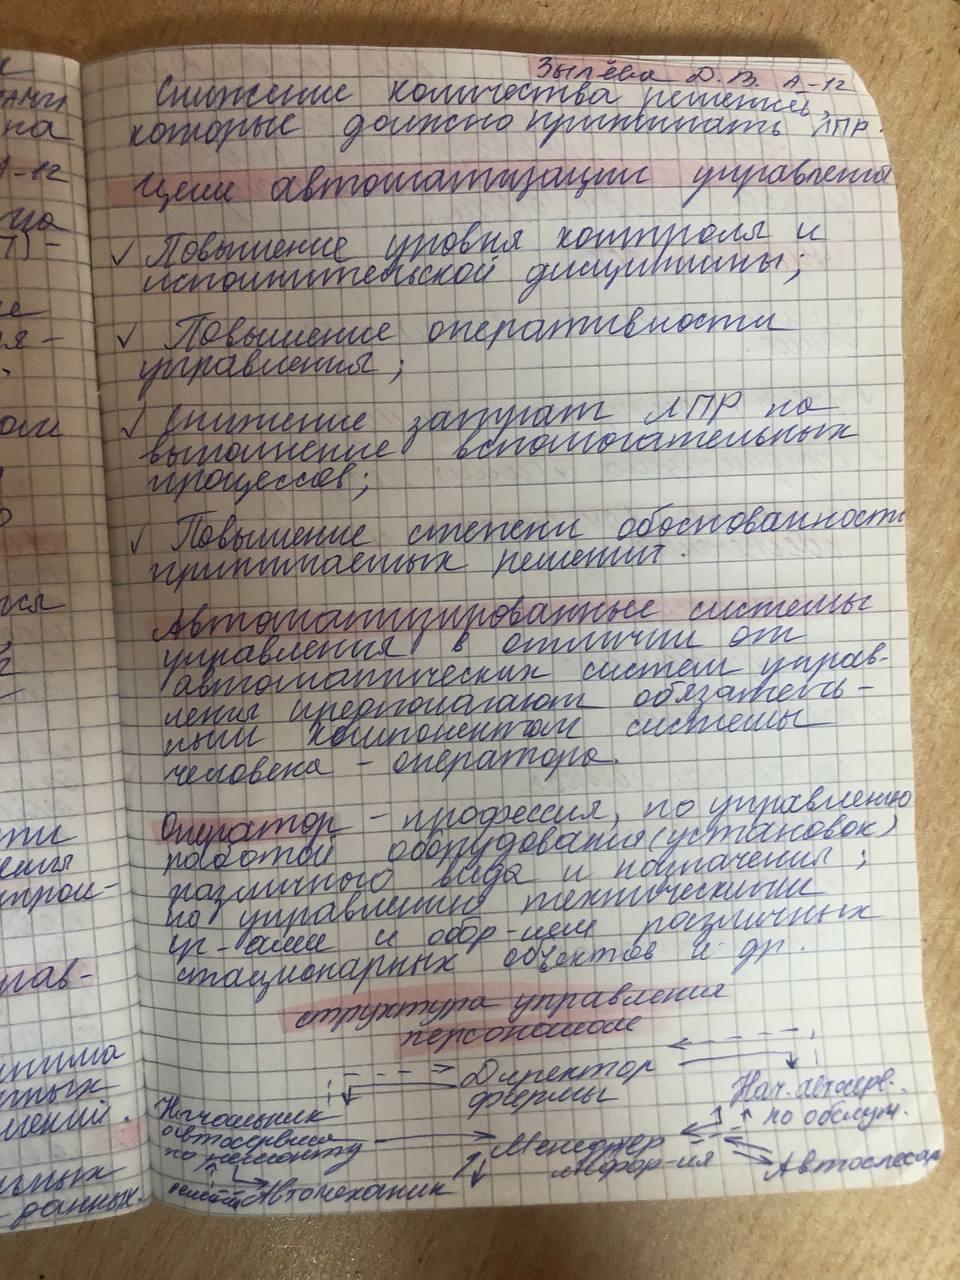 Зылёва Д. В. А-12
Снижение количества решений,
которые должно принимать ЛПР.
Цели автоматизации управления
✓ Повышение уровня контроля и
исполнительской дисциплины;
✓ Повышение оперативности
управления;
✓ Снижение затрат ЛПР на
выполнение вспомогательных
процессов;
✓ Повышение степени обоснованности
принимаемых решений.
Автоматизированные системы
управления в отличии от
автоматических систем управ-
ления предполагают обязатель-
ным компонентом системы
человека - оператора.
Оператор - профессия, по управлению
работой оборудования (установок)
различного вида и назначения;
по управлению техническими
ус-ами и обор-ием различных
стационарных объектов и др.
структура управления
персоналом
Директор
фирмы
Нач. автосерв.
по обслуж.
Начальник
автосервиса
по ремонту
Менеджер
Информ-ия
Автослесарь
Автомеханик